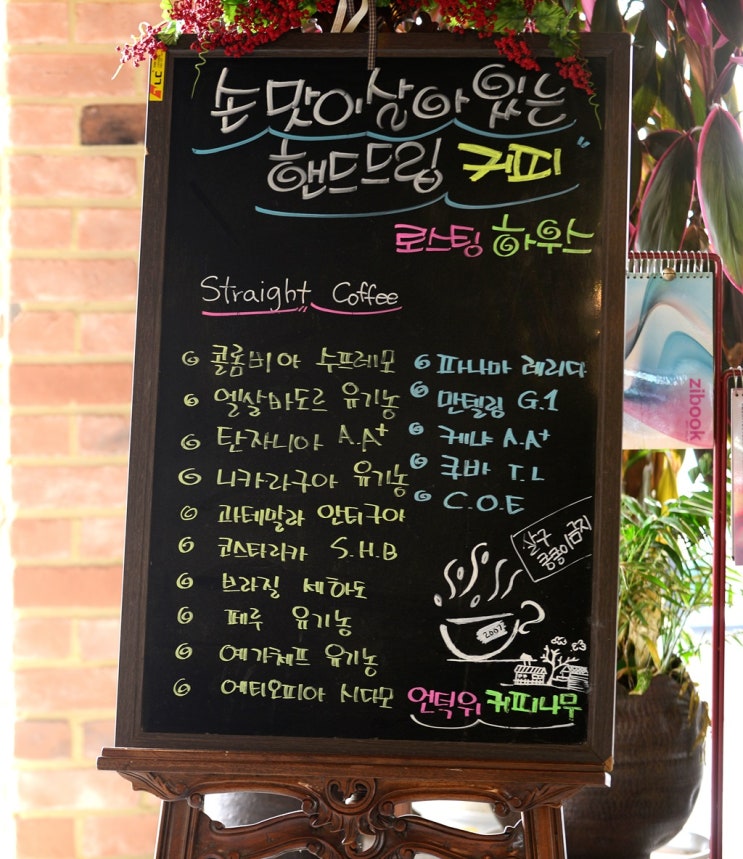 손맛이살아있는
핸드드립 커피
로스팅 하우스
Straight Coffee
콜롬비아 수프레모
엘살바도르 유기농
탄자니아 A.A+
니카라구아 유기농
과테말라 안티구아
코스타리카 S.H.B
브라질 세하도
페루 유기농
예가체프 유기농
에티오피아 시다모
파나마 레리다
만델링 G.1
케냐 A.A+
쿠바 T.L
C.O.E
살구
쿵쿵이금지
2007
언덕위 커피나무
zibook